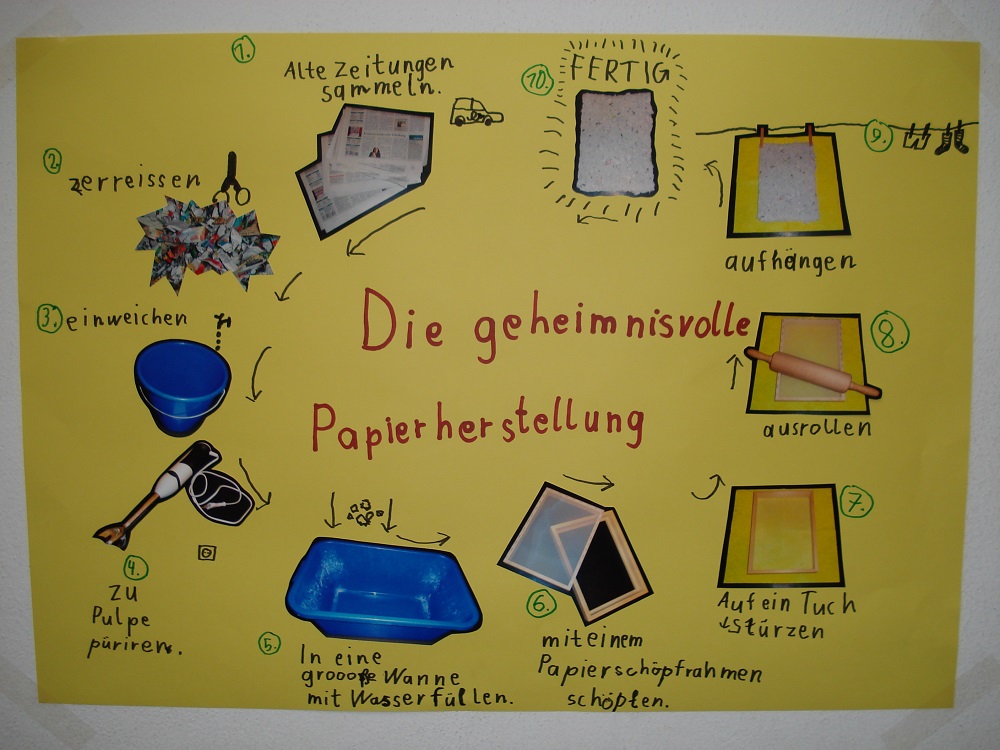 1.
Alte Zeitungen
sammeln.
2.
zerreissen
3.
einweichen
4.
zu
Pulpe
püriren.
5.
In eine
groooße Wanne
mit Wasser füllen.
6.
mit einem
Papierschöpfrahmen
schöpfen.
7.
Auf ein Tuch
stürzen
8.
ausrollen
9.
aufhängen
10.
FERTIG
Die geheimnisvolle
Papierherstellung